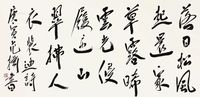 落日松風
起還家
草露晞
雲光侵
履迹山
翠拂人
衣 裴迪詩
庚寅 書